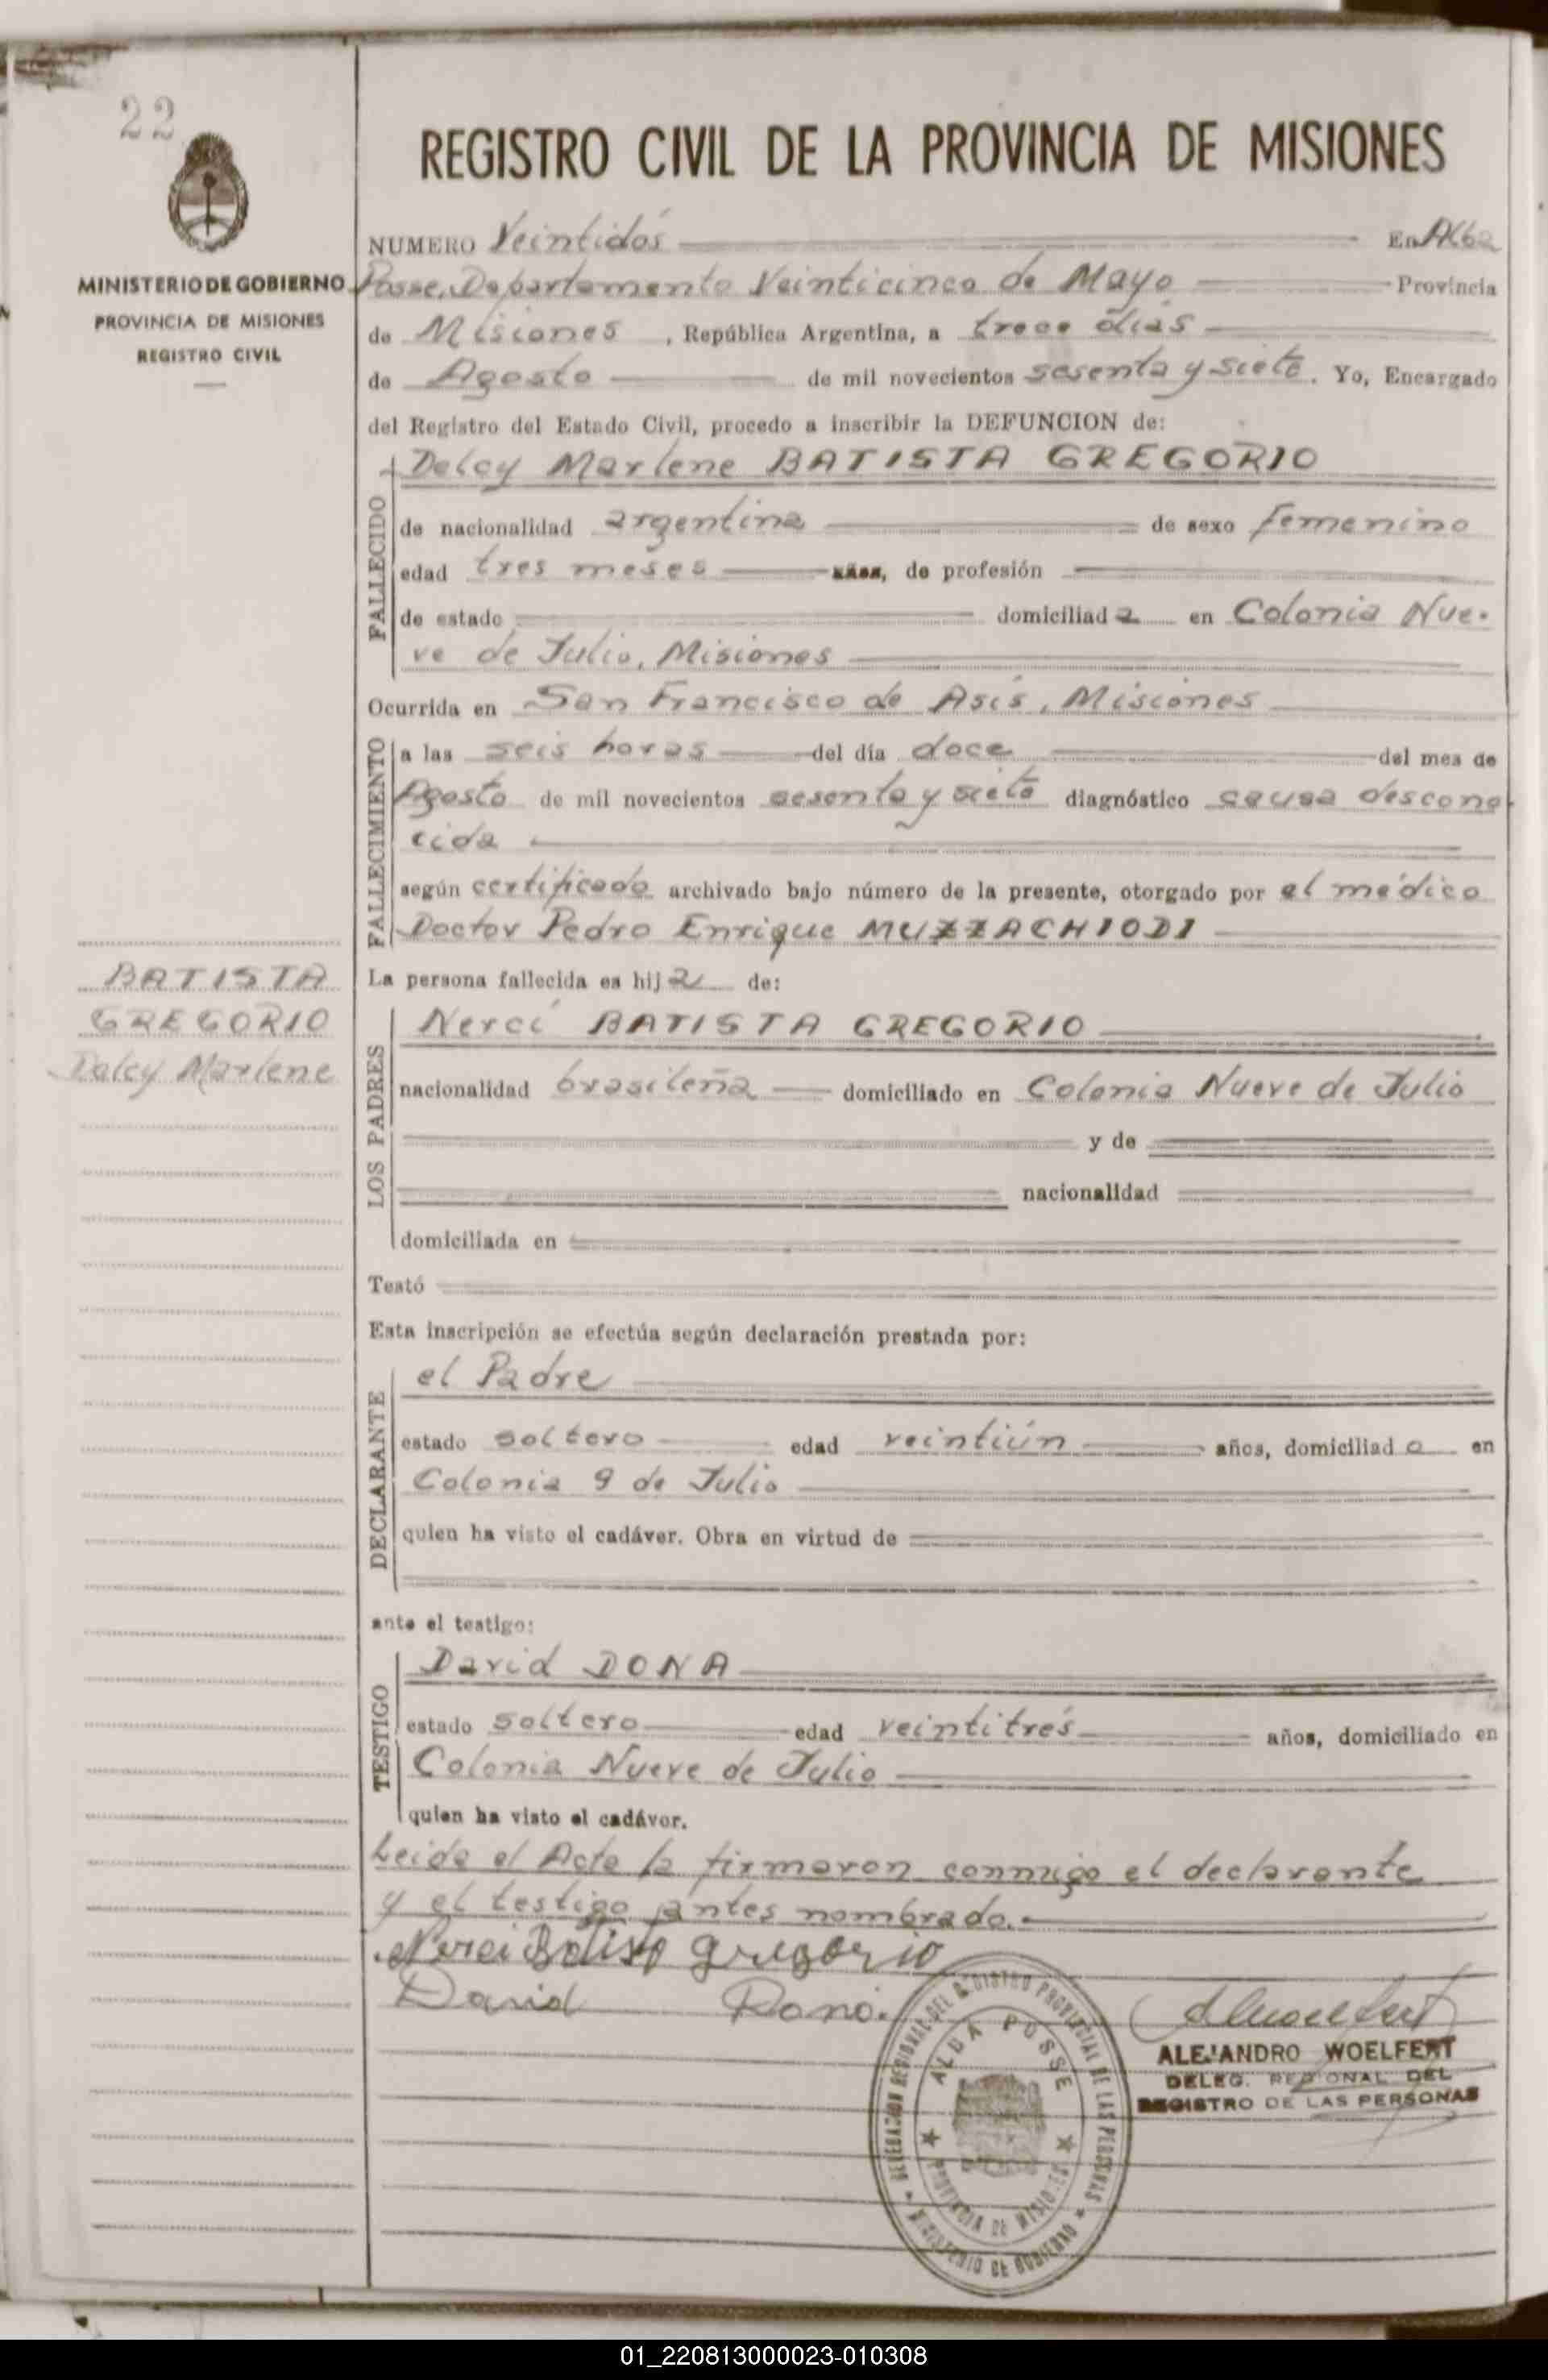 22
MINISTERIO DE GOBIERNO
PROVINCIA DE MISIONES
REGISTRO CIVIL
REGISTRO CIVIL DE LA PROVINCIA DE MISIONES
NUMERO Veintidós En Alba
Posse, Departamento Veinticinco de Mayo Provincia
de Misiones, República Argentina, a trece días
de Agosto de mil novecientos sesenta y siete. Yo, Encargado
del Registro del Estado Civil, procedo a inscribir la DEFUNCION de:
FALLECIDO
Delcy Marlene BATISTA GREGORIO
de nacionalidad argentina de sexo femenino
edad tres meses años, de profesión
de estado domiciliada en Colonia Nue-
ve de Julio, Misiones
Ocurrida en San Francisco de Asís, Misiones
FALLECIMIENTO
a las seis horas del día doce del mes de
Agosto de mil novecientos sesenta y siete diagnóstico causa descono
cida
según certificado archivado bajo número de la presente, otorgado por el médico
Doctor Pedro Enrique MUZZACHIODI
BATISTA
GREGORIO
Delcy Marlene
La persona fallecida es hija de:
LOS PADRES
Nerci BATISTA GREGORIO
nacionalidad brasileña domiciliado en Colonia Nueve de Julio
y de
nacionalidad
domiciliada en
Testó
Esta inscripción se efectúa según declaración prestada por:
DECLARANTE
el Padre
estado soltero edad veintiún años, domiciliado en
Colonia 9 de Julio
quien ha visto el cadáver. Obra en virtud de
ante el testigo:
TESTIGO
David DONA
estado soltero edad veintitrés años, domiciliado en
Colonia Nueve de Julio
quien ha visto el cadáver.
Leida el Acta la firmaron conmigo el declarante
y el testigo antes nombrado.-
Nerci Batista gregorio
David Dona.
DELEGACION REGIONAL DEL REGISTRO PROVINCIAL DE LAS PERSONAS
MINISTERIO DE GOBIERNO
ALBA POSSE
PROVINCIA DE MISIONES
ALEJANDRO WOELFERT
DELEG. REGIONAL DEL
REGISTRO DE LAS PERSONAS
01_220813000023-010308